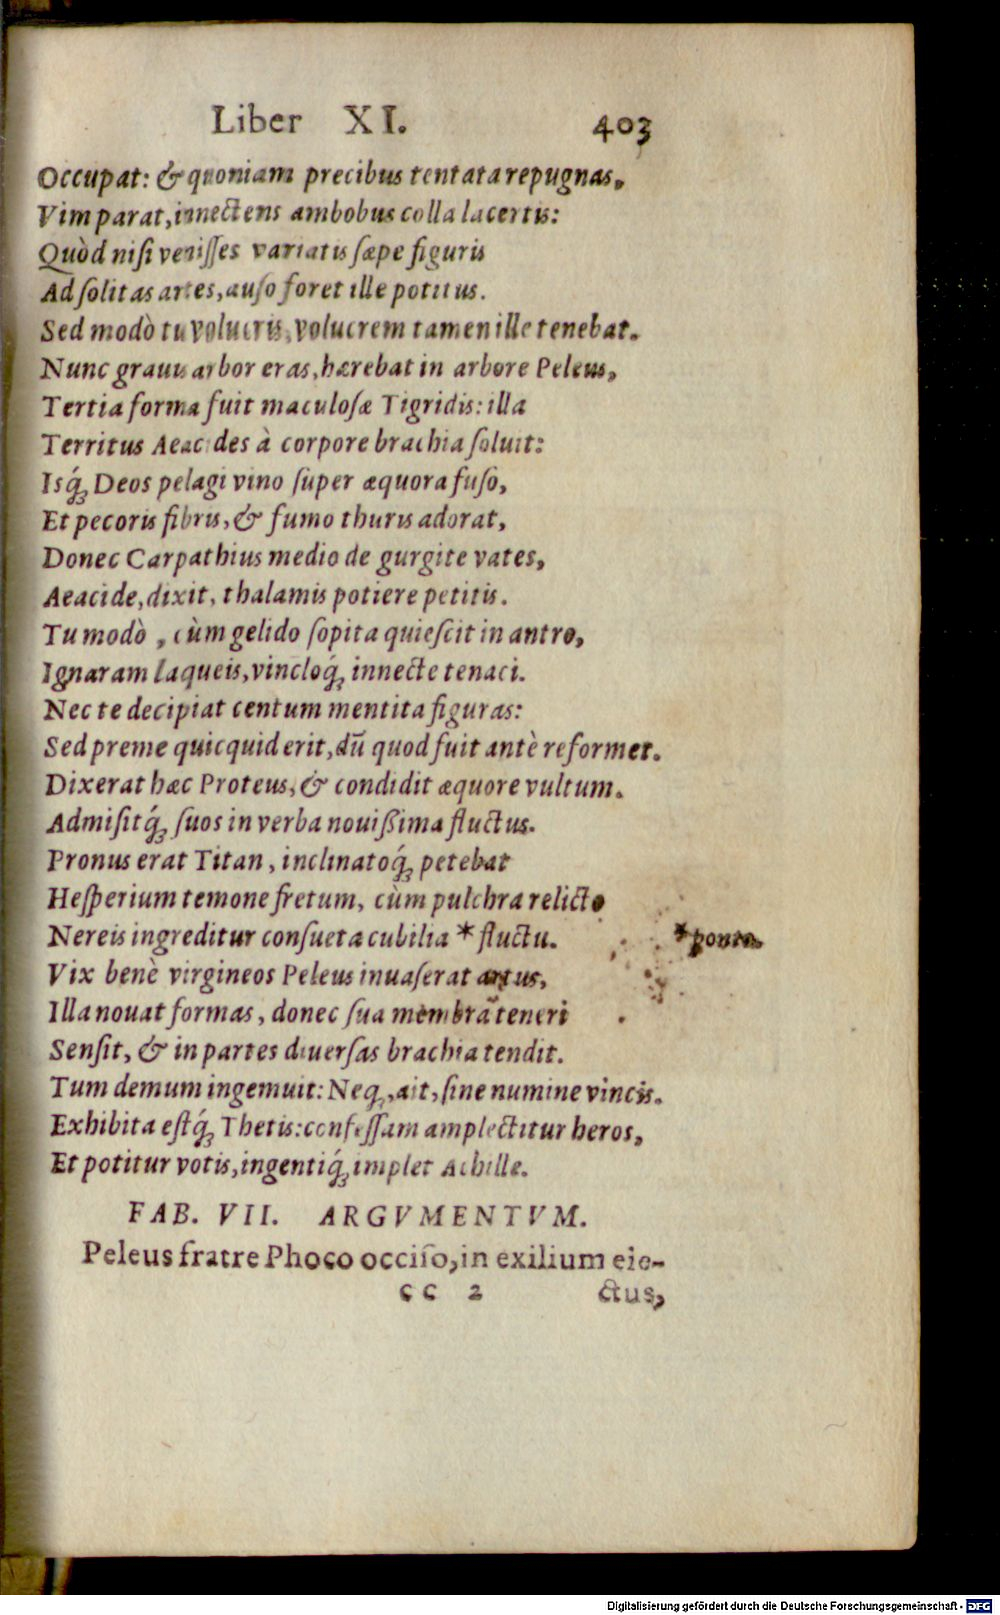 Liber XI. 403
Occupat: & quoniam precibus tentata repugnas,
Vim parat, innectens ambobus colla lacertis:
Quòd nisi venisses variatis sæpe figuris
Ad solitas artes, auso foret ille potitus.
Sed modò tu volucris, volucrem tamen ille tenebat.
Nunc grauis arbor eras, hærebat in arbore Peleus,
Tertia forma fuit maculosæ Tigridis: illa
Territus Aeacides à corpore brachia soluit:
Isq́; Deos pelagi vino super æquora fuso,
Et pecoris fibris, & fumo thuris adorat,
Donec Carpathius medio de gurgite vates,
Aeacide, dixit, thalamis potiere petitis.
Tu modò, cùm gelido sopita quiescit in antro,
Ignaram laqueis, vincloq́; innecte tenaci.
Nec te decipiat centum mentita figuras:
Sed preme quicquid erit, dū quod fuit antè reformet.
Dixerat hæc Proteus, & condidit æquore vultum.
Admisitq́; suos in verba nouißima fluctus.
Pronus erat Titan, inclinatoq́; petebat
Hesperium temone fretum, cùm pulchra relicto
Nereis ingreditur consueta cubilia * fluctu. *ponto.
Vix benè virgineos Peleus inuaserat artus,
Illa nouat formas, donec sua membra teneri
Sensit, & in partes diuersas brachia tendit.
Tum demum ingemuit: Neq;, ait, sine numine vincis.
Exhibita estq́; Thetis: confessam amplectitur heros,
Et potitur votis, ingentiq́; implet Achille.
FAB. VII. ARGVMENTVM.
Peleus fratre Phoco occiso, in exilium eie-
cc 2 ctus,
Digitalisierung gefördert durch die Deutsche Forschungsgemeinschaft - DFG